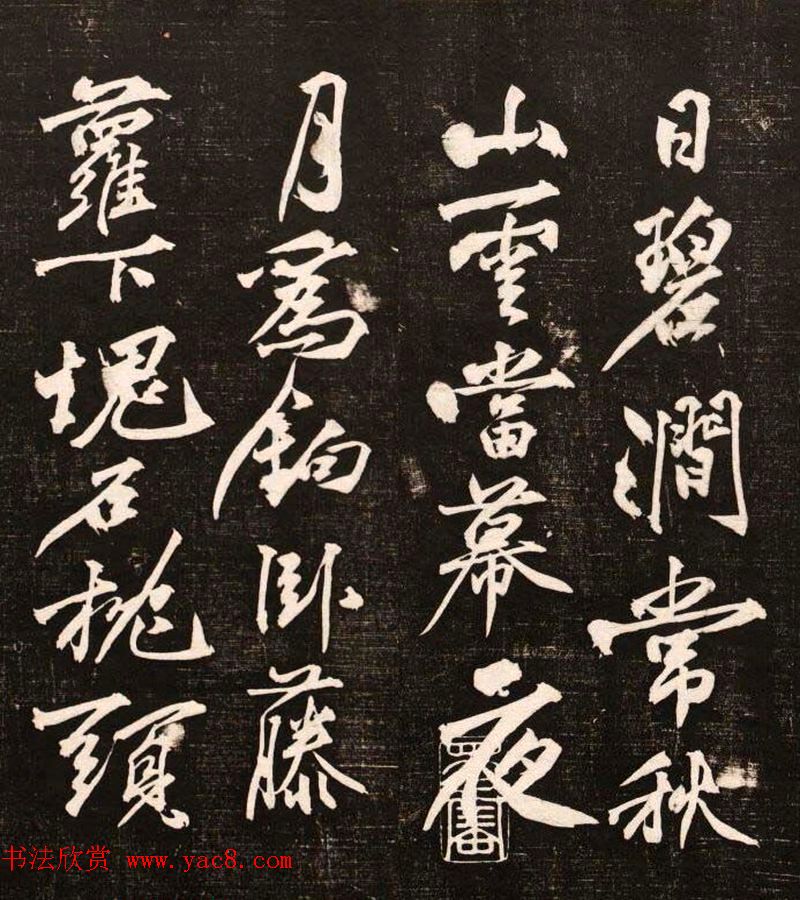 日碧澗常秋
山雲當幕夜
月為鉤卧藤
蘿下塊石枕頭
书法欣赏 www.yac8.com